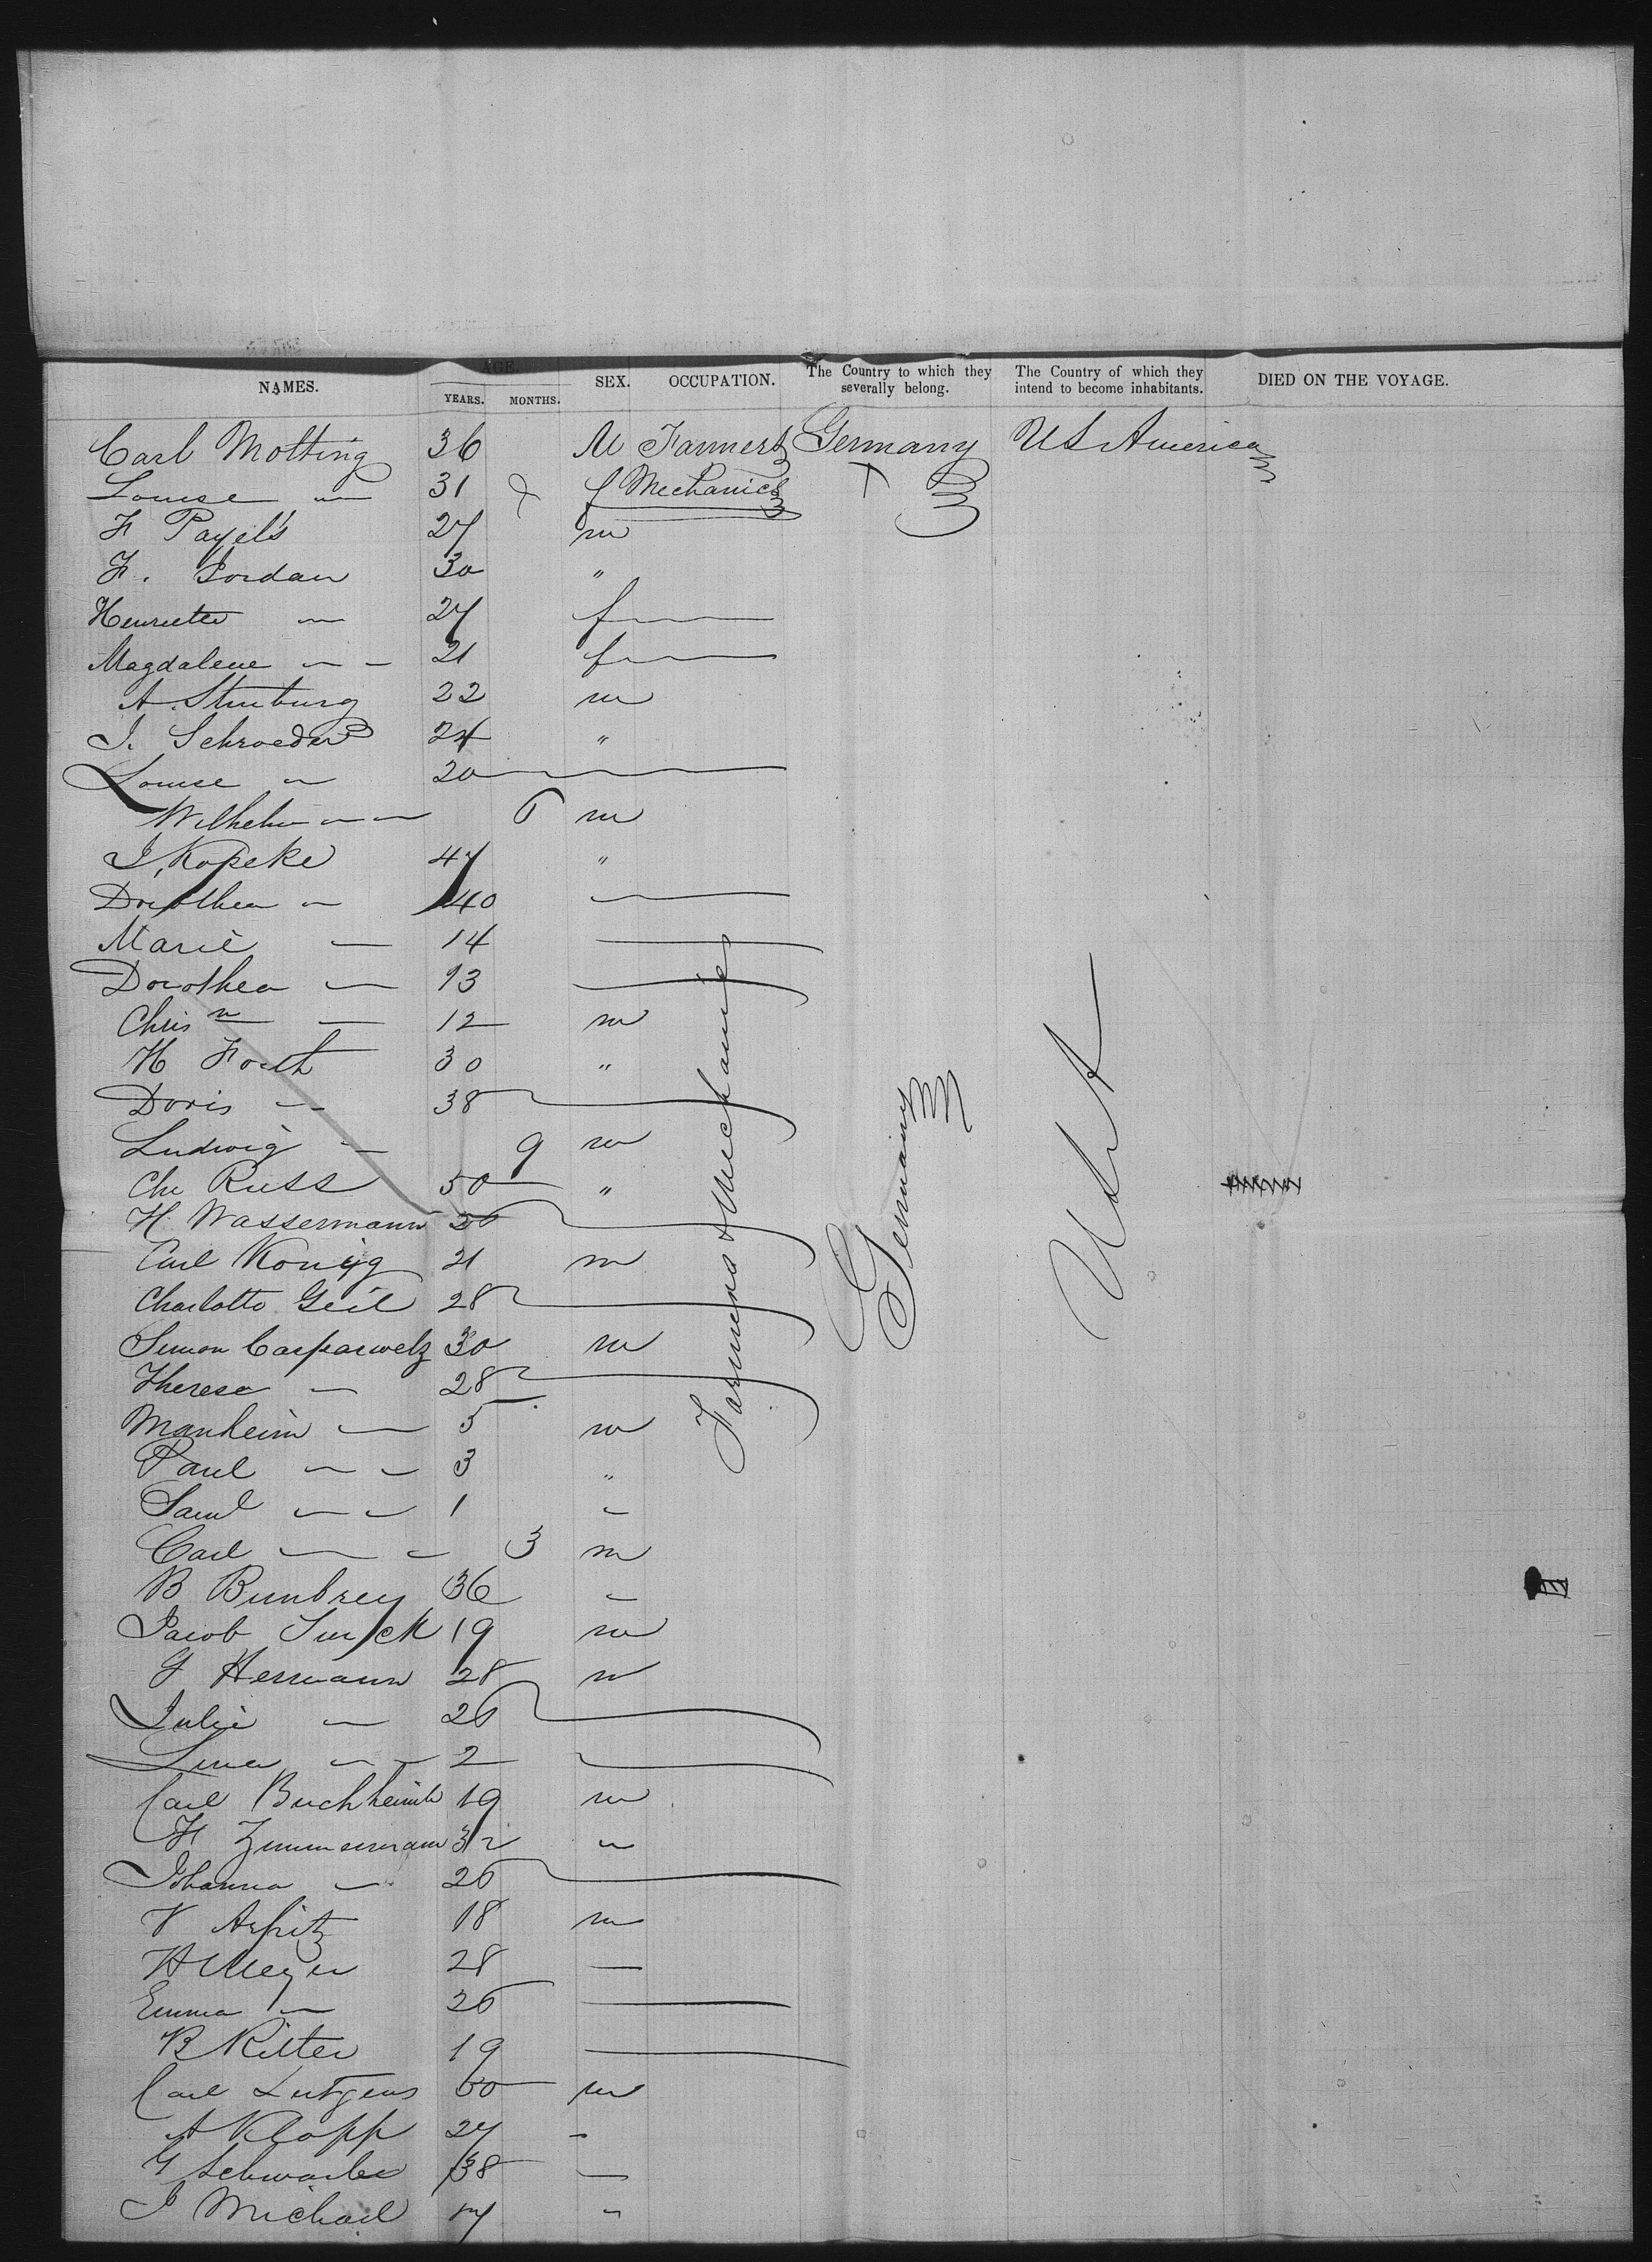 NAMES. AGE. YEARS. MONTHS. SEX. OCCUPATION. The Country to which they severally belong. The Country of which they intend to become inhabitants. DIED ON THE VOYAGE.
Carl Molting 36 M Farmers Germany US America
Louise — 31 f Mechanics
F Payels 27 m
F. Jordan 30 "
Henriette — 27 f
Magdalene — — 21 f
A. Stenburg 22 m
J. Schroeder 24 "
Louise — 20
Wilhelm — — 6 m
J. Kopeke 47 "
Dorothea — 40
Marie — 14
Dorothea — 13
Chrisn — 12 m
H Forth 30 "
Doris — 38
Ludwig — 9 m
Chr Russ 50 "
H. Wassermann 26
Carl Konig 21 m
Charlotte Geil 28
Simon Casparwelz 30 m
Theresa — 28
Manheim — 5 m
Paul — — 3 "
Saml — — 1 —
Carl — — 3 m
B Bunbrey 36 —
Jacob 19 m
Herrmann 28 m
Julie — 26
Lina — — 2
Carl Buchheimh 19 m
H Zimmermann 32 —
Johanna — 26
V Aspitz 18 m
H Meyer 28 —
Emma — 26
B Ritter 19
Carl Lutgens 30 m
A Klopp 27 -
Schwarber 38 —
J Michael 17 -
Farmers & Mechanics
Germany
USA